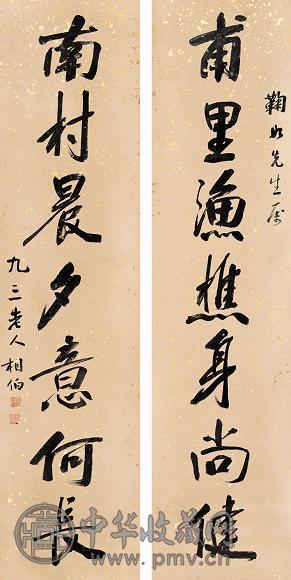 鞠如先生属
甫里漁樵身尚健
南村晨夕意何長
九三老人相伯
中华收藏网
www.pmv.cn